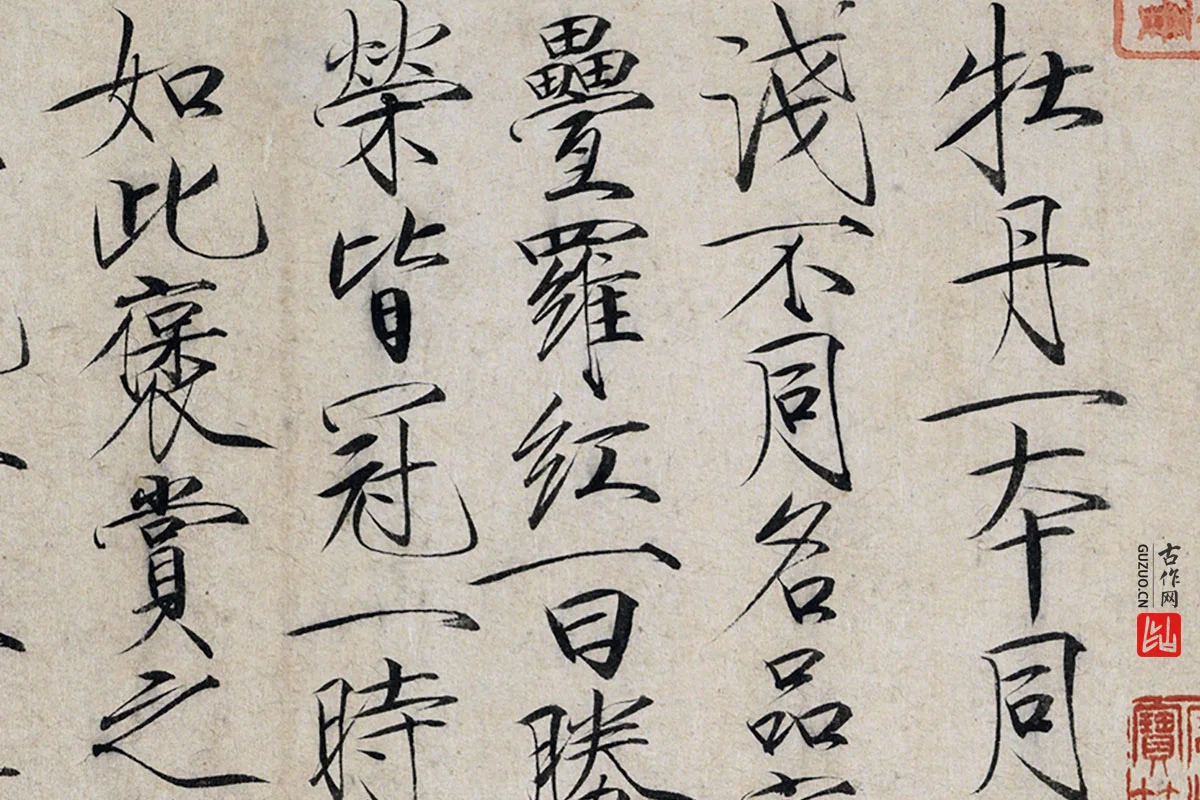 牡丹一本同
淺不同名品
疊羅紅一曰勝
榮皆冠一時
如此褒賞之
古作网
GUZUO.CN
寶